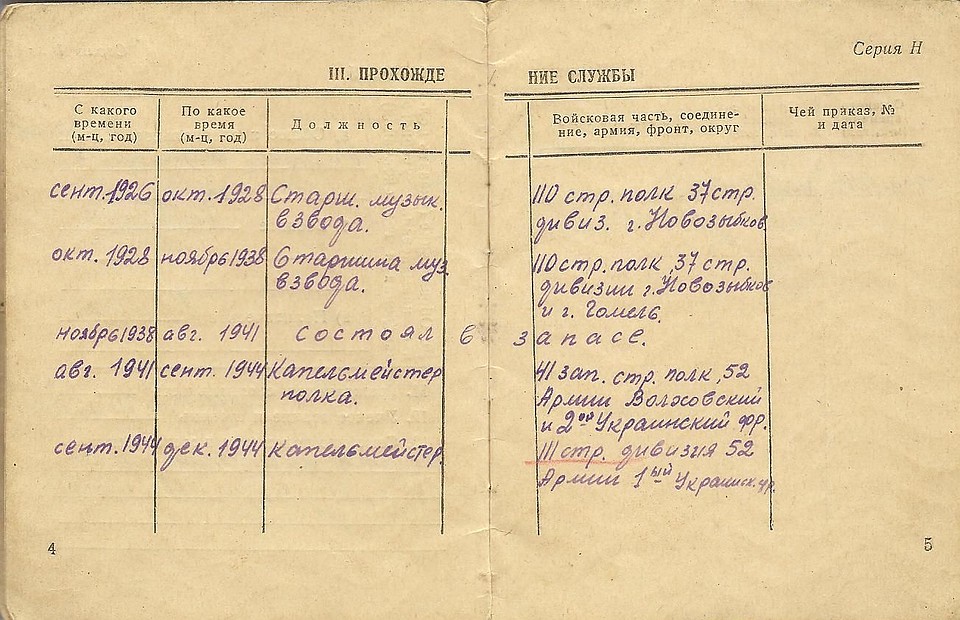 Серия Н
III. ПРОХОЖДЕ НИЕ СЛУЖБЫ
С какого времени (м-ц, год)
По какое время (м-ц, год)
Должность
Войсковая часть, соедине-
ние, армия, фронт, округ
Чей приказ, №
и дата
сент. 1926 окт. 1928 Старш. музык. 110 стр. полк 37 стр.
взвода. дивиз. г. Новозыбков
окт. 1928 ноябрь 1938 Старшина муз. 110 стр. полк, 37 стр.
взвода. дивизии г. Новозыбков
и г. Гомель.
ноябрь 1938 авг. 1941 состоял в запасе.
авг. 1941 сент. 1944 Капельмейстер 41 зап. стр. полк, 52
полка. Армии Волховский
и 2ой Украинский фр.
сент. 1944 дек. 1944 Капельмейстер. 111 стр. дивизия 52
Армии 1ый Украинск. фр.
4
5